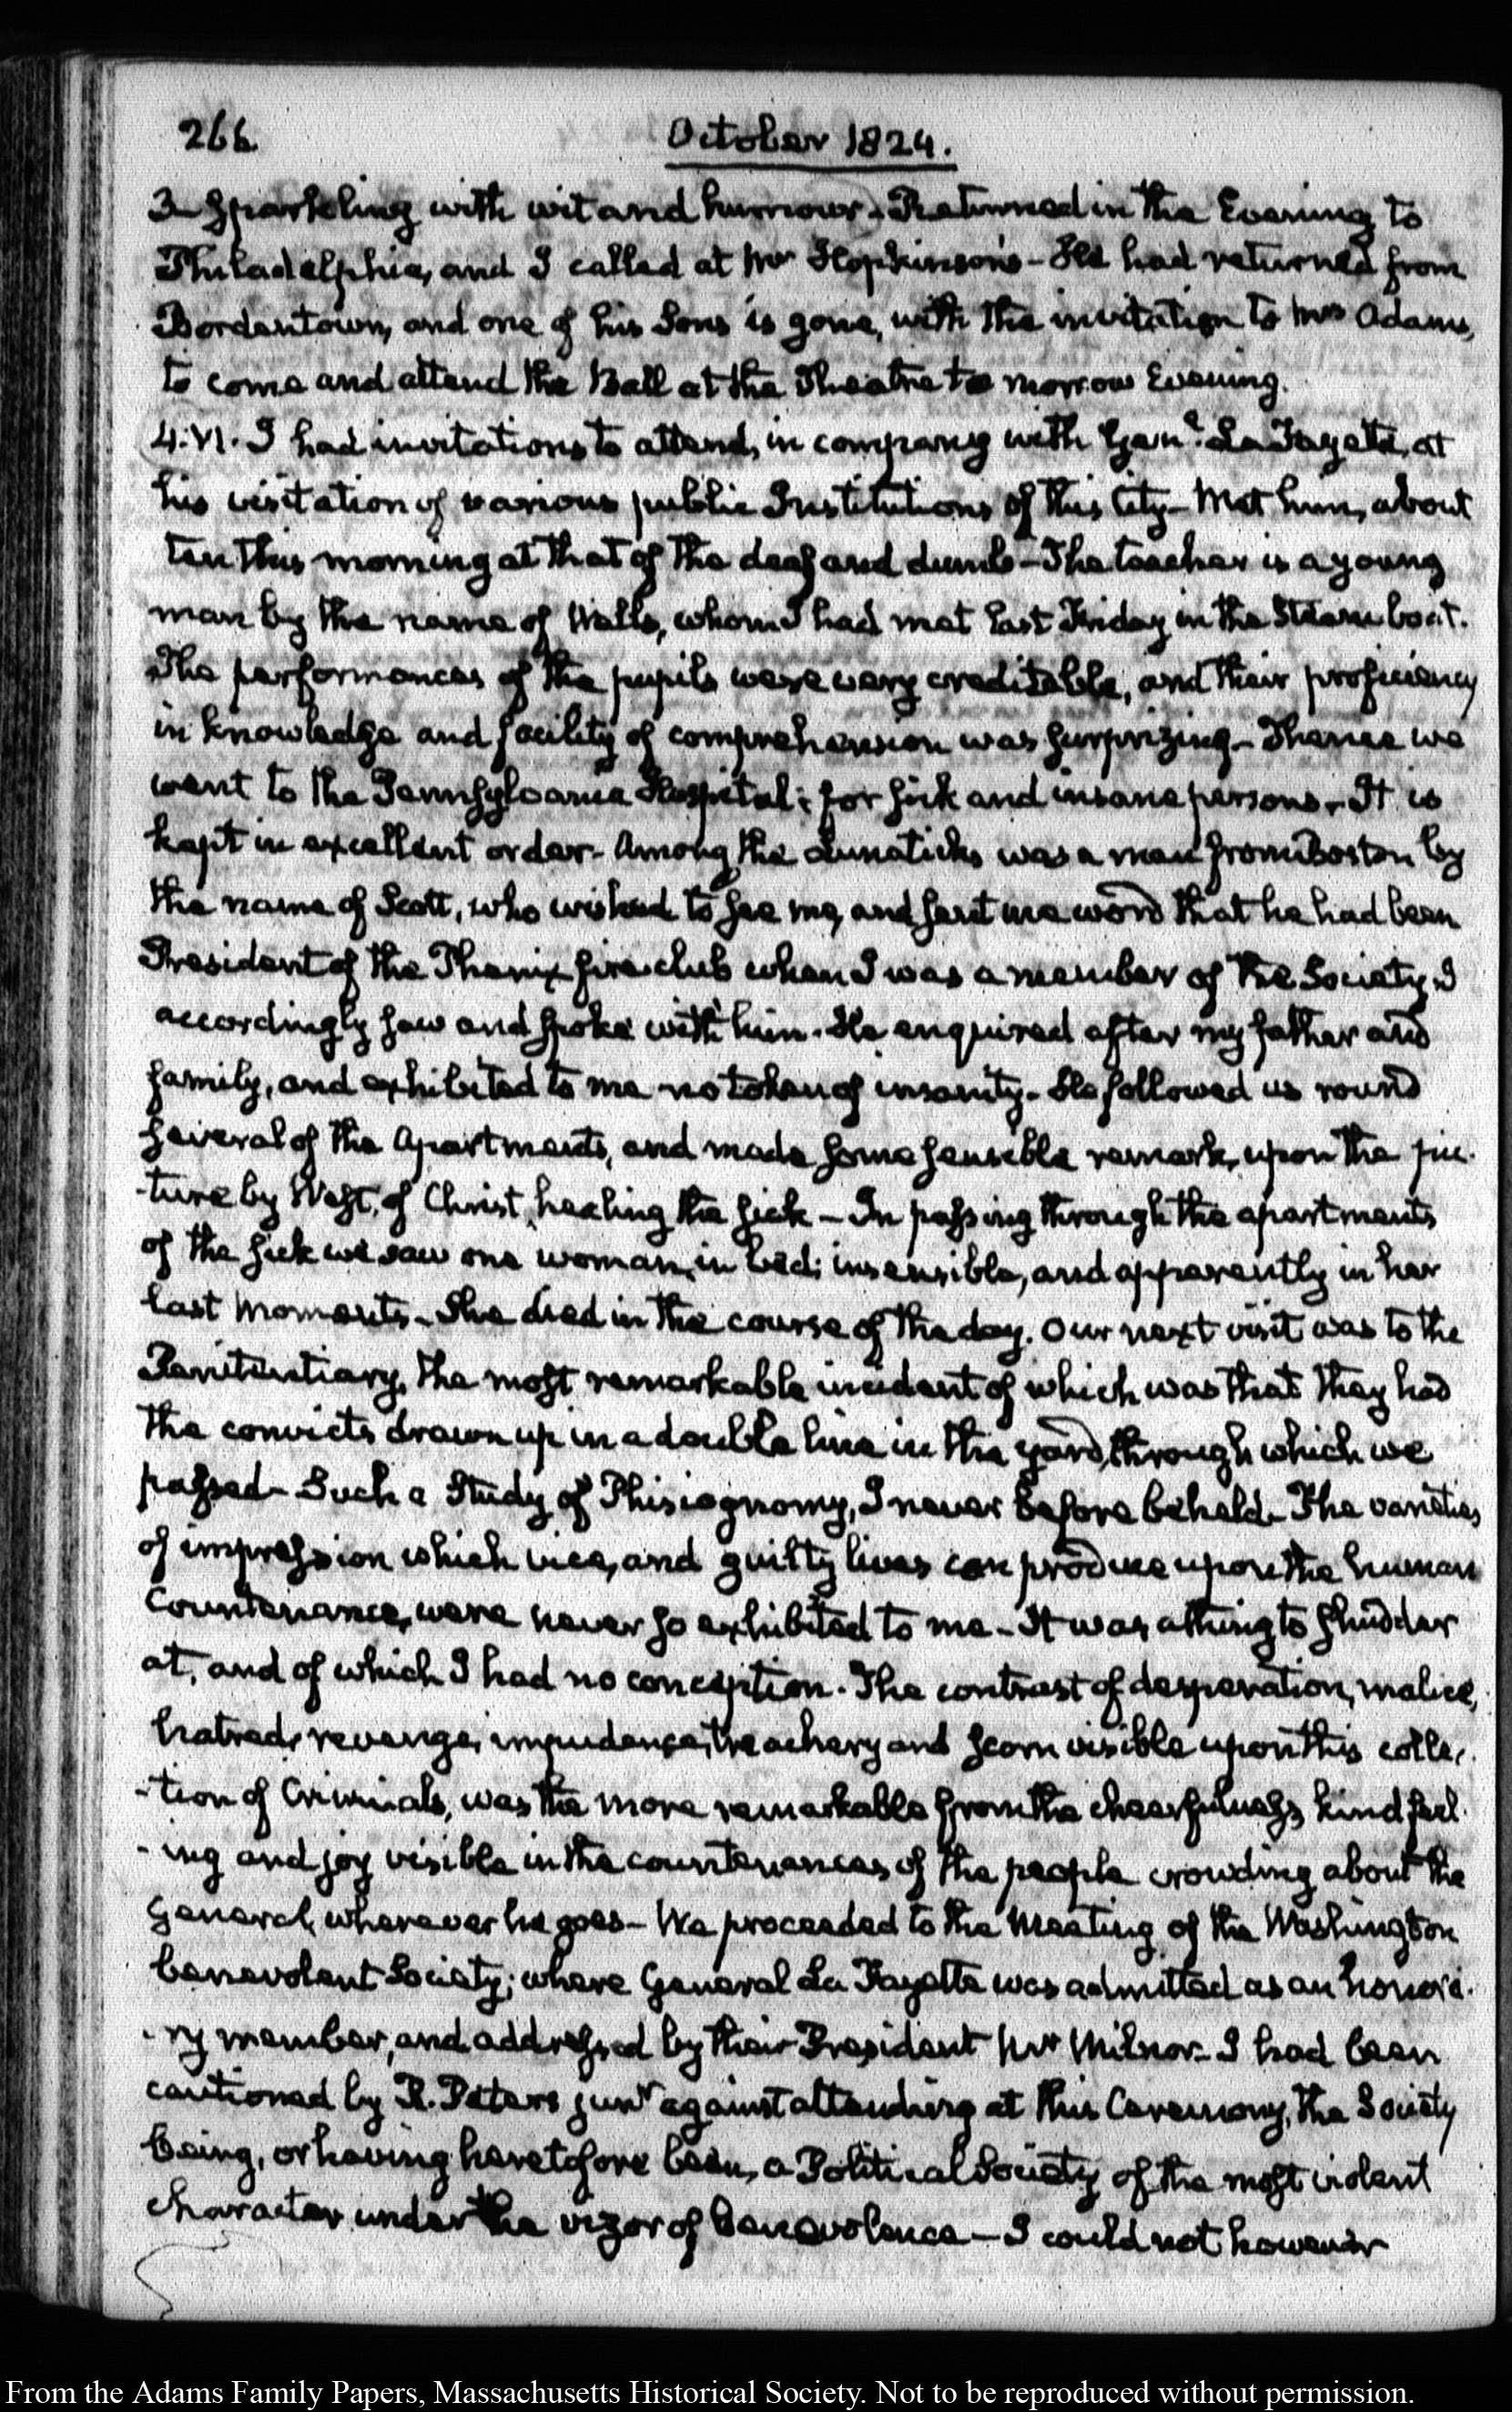 266
October 1824.
3— Sparkling with wit and humour. Returned in the Evening to
Philadelphia, and I called at Mr Hopkinson's— He had returned from
Bordentown, and one of his Sons is gone, with the invitation to Mrs Adams,
to come and attend the Ball at the Theatre to morrow Evening.
4. VI. I had invitations to attend, in company with Genl. La Fayette, at
his visitation of various public Institutions of this City— Met him, about
ten this morning at that of the deaf and dumb— The teacher is a young
man by the name of Wells, whom I had met last Friday in the Steam boat.
The performances of the pupils were very creditable, and their proficiency
in knowledge and facility of comprehension was surprizing— Thence we
went to the Pennsylvania Hospital; for sick and insane persons. It is
kept in excellent order— Among the Lunaticks was a man from Boston by
the name of Scott, who wished to see me, and sent me word that he had been
President of the Phenix fire club when I was a member of the Society. I
accordingly saw and spoke with him. He enquired after my father and
family, and exhibited to me no token of insanity. He followed us round
several of the Apartments, and made some sensible remark, upon the pic-
-ture by West, of Christ healing the sick— In passing through the apartments
of the sick we saw one woman, in bed; insensible, and apparently in her
last moments— She died in the course of the day. Our next visit was to the
Penitentiary, the most remarkable incident of which was that they had
the convicts drawn up in a double line in the yard, through which we
passed— Such a Study of Phisiognomy, I never before beheld— The varieties
of impression which vice, and guilty lives can produce upon the human
Countenance, were never so exhibited to me— It was a thing to shudder
at, and of which I had no conception. The contrast of desperation, malice,
hatred, revenge, impudence, treachery and scorn visible upon this collec-
-tion of Criminals, was the more remarkable from the chearfulness, kind feel-
-ing and joy visible in the countenances of the people crowding about the
General, wherever he goes— We proceeded to the Meeting of the Washington
benevolent Society; where General La Fayette was admitted as an honora-
-ry member, and addressed by their President Mr Milnor— I had been
cautioned by R. Peters junr against attending at this Ceremony, the Society
being, or having heretofore been, a Political Society of the most violent
character under the vizor of Benevolence— I could not however
From the Adams Family Papers, Massachusetts Historical Society. Not to be reproduced without permission.